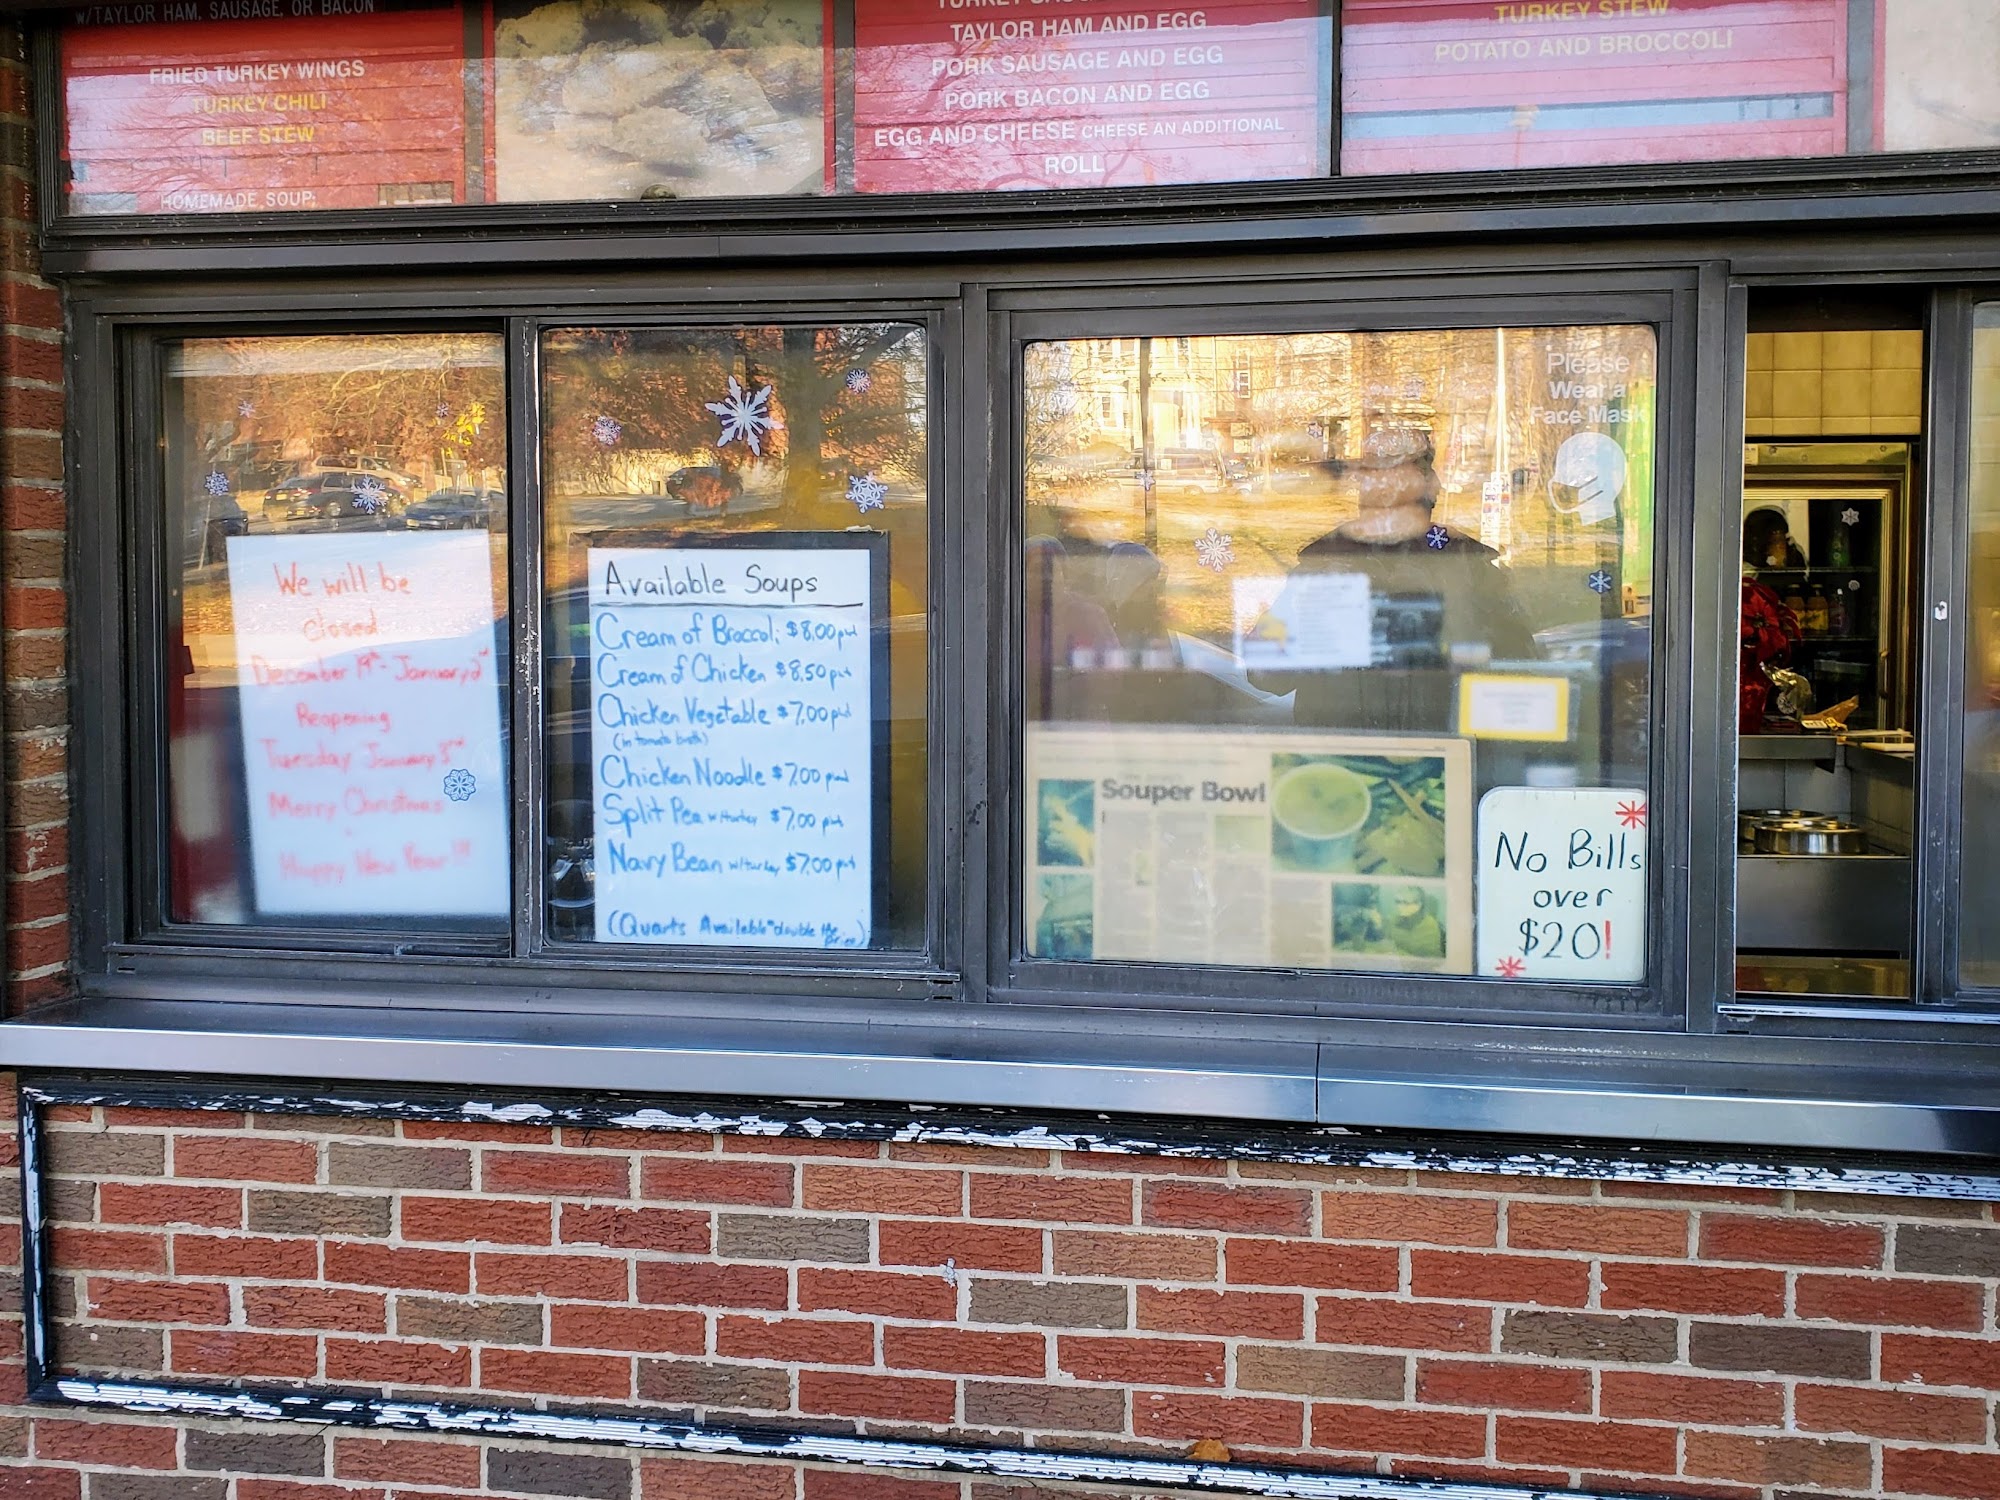 W/TAYLOR HAM, SAUSAGE, OR BACON
FRIED TURKEY WINGS
TURKEY CHILI
BEEF STEW
HOMEMADE SOUP:
TAYLOR HAM AND EGG
PORK SAUSAGE AND EGG
PORK BACON AND EGG
EGG AND CHEESE CHEESE AN ADDITIONAL
ROLL
TURKEY STEW
POTATO AND BROCCOLI
We will be
closed
December 19th - January 2nd
Reopening
Tuesday January 3rd
Merry Christmas
Happy New Year!!!
Available Soups
Cream of Broccoli $8.00
Cream of Chicken $8.50
Chicken Vegetable $7.00
(in tomato broth)
Chicken Noodle $7.00
Split Pea w/turkey $7.00
Navy Bean w/turkey $7.00
(Quarts Available double the price)
Please
Wear a
Face Mask
Souper Bowl
No Bills
over
$20!